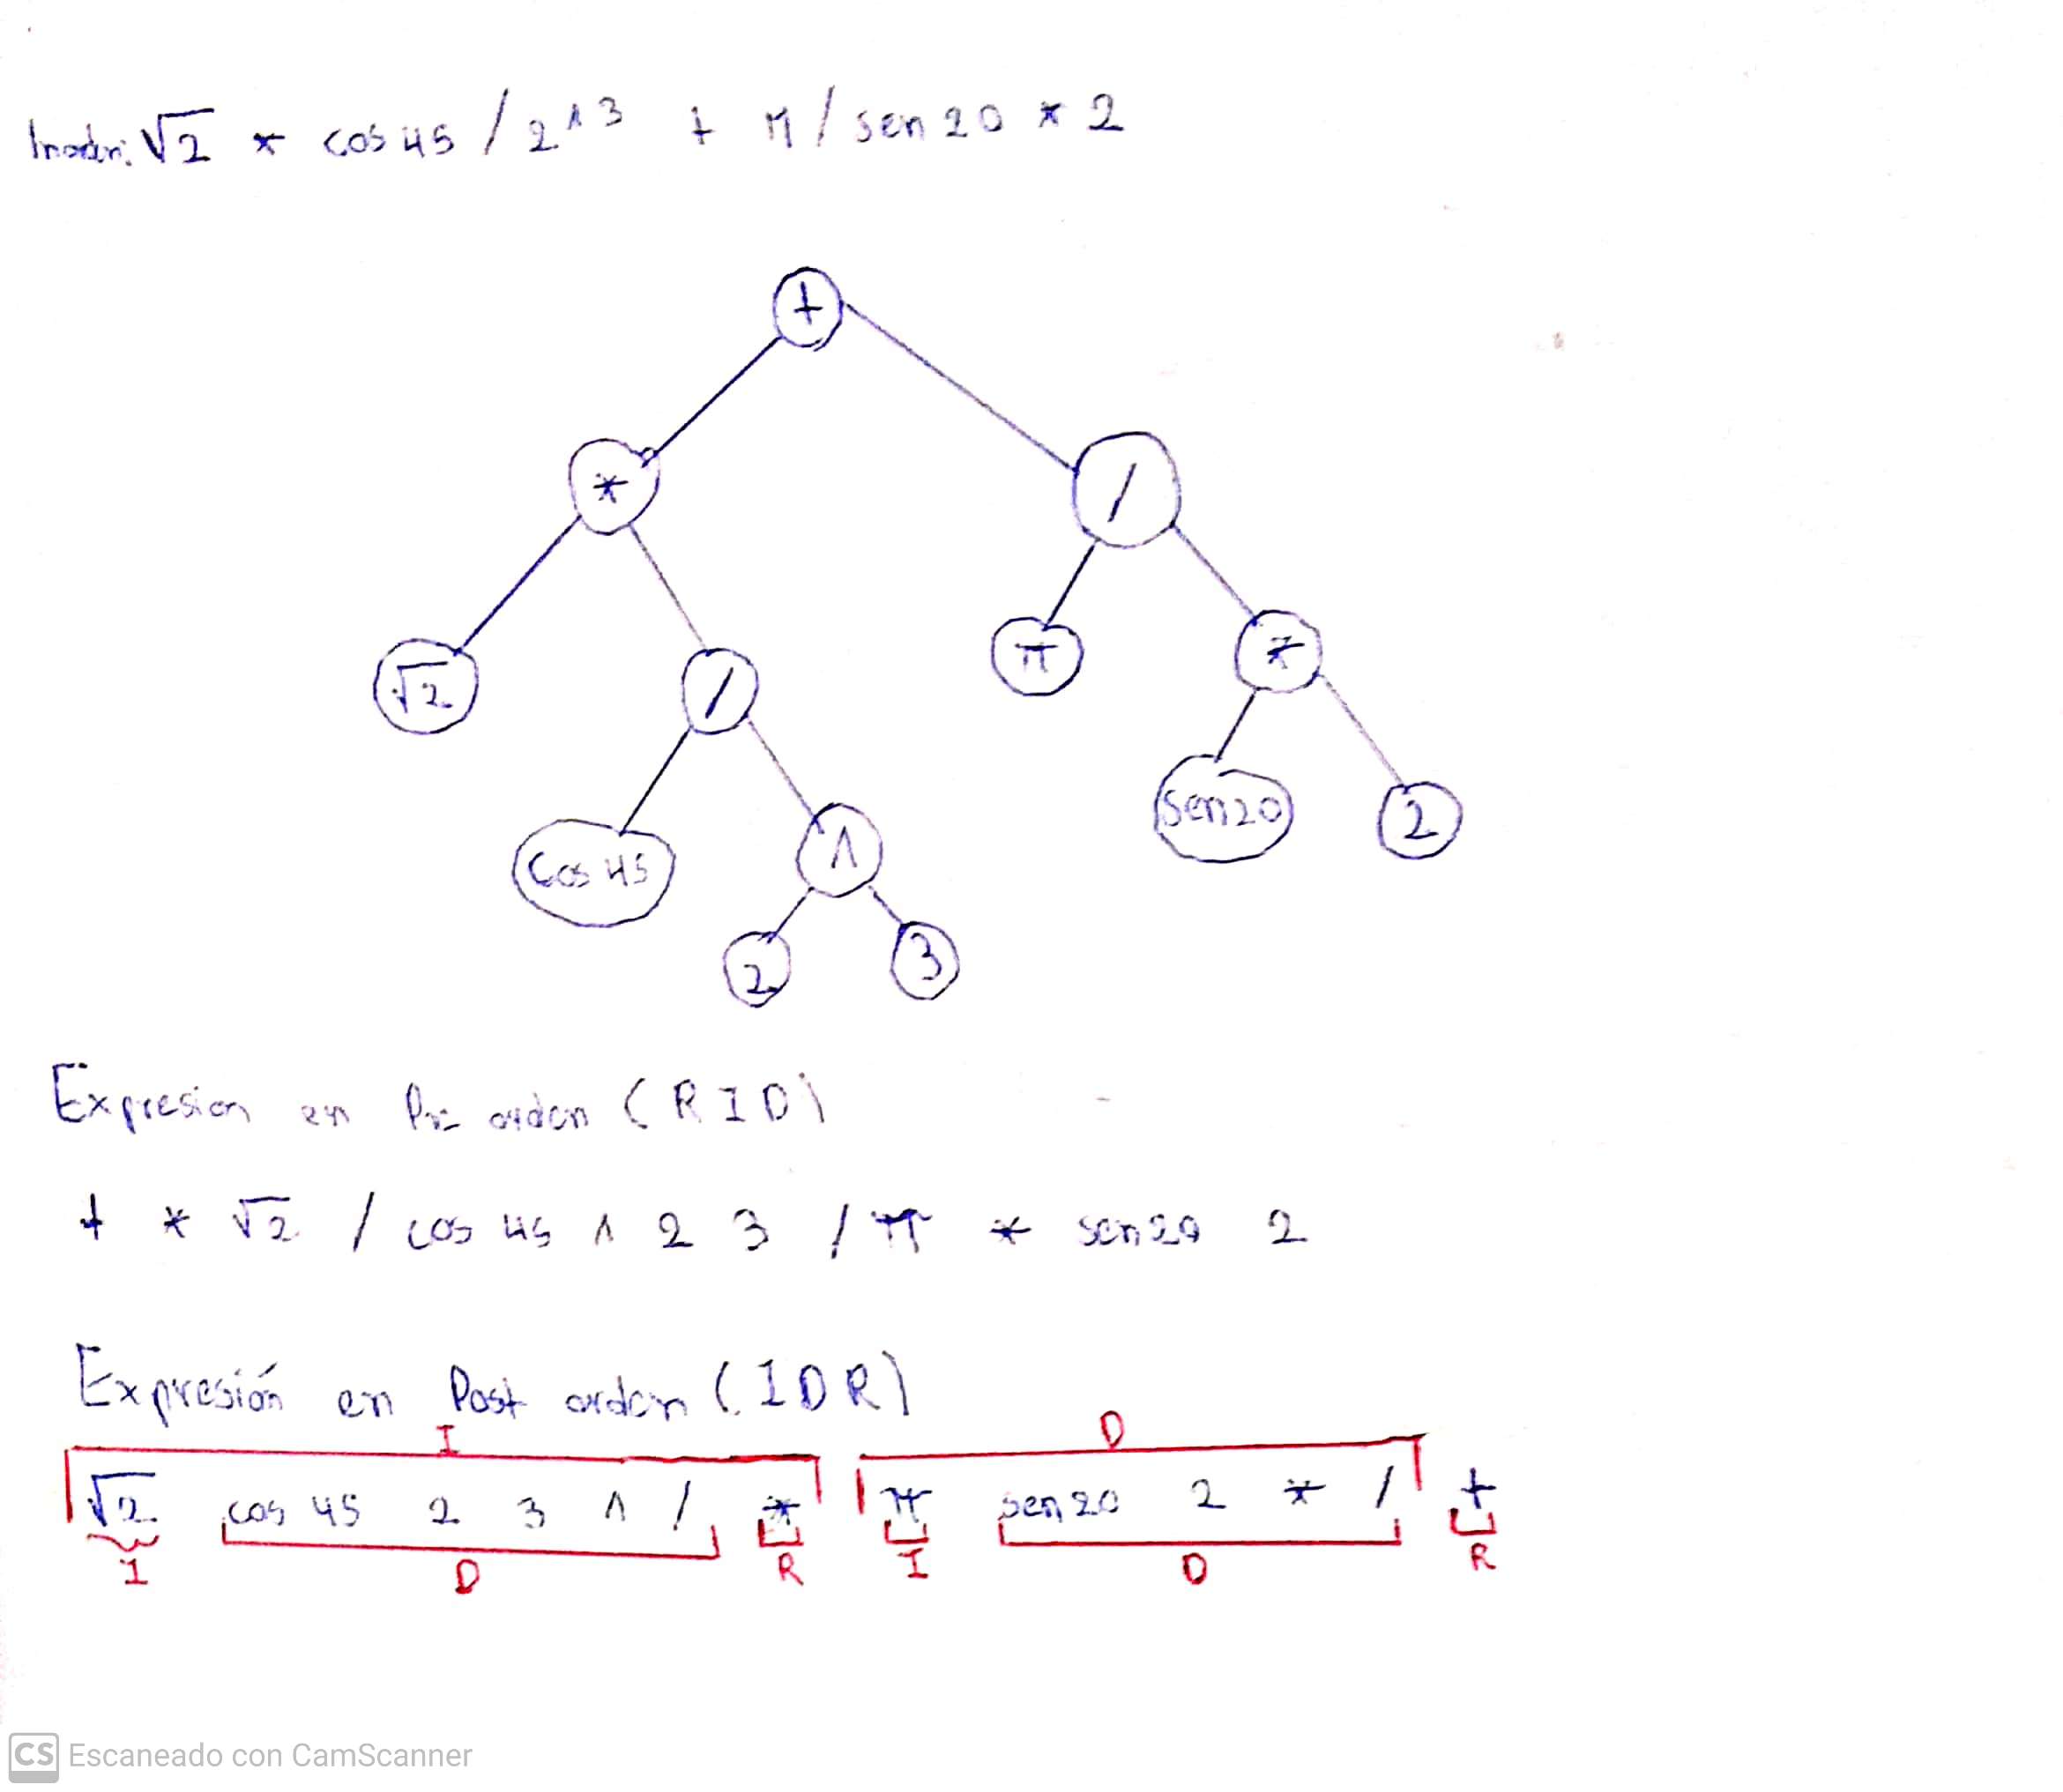 Inorden: √2 * cos 45 / 2 ^ 3 + π / sen 20 * 2
+
* /
√2 / π *
cos 45 ^ sen20 2
2 3
Expresion en Pre orden (RID)
+ * √2 / cos 45 ^ 2 3 / π * sen20 2
Expresión en Post orden (IDR)
I D
√2 cos 45 2 3 ^ / * π sen20 2 * / +
I D R I D R
CS Escaneado con CamScanner